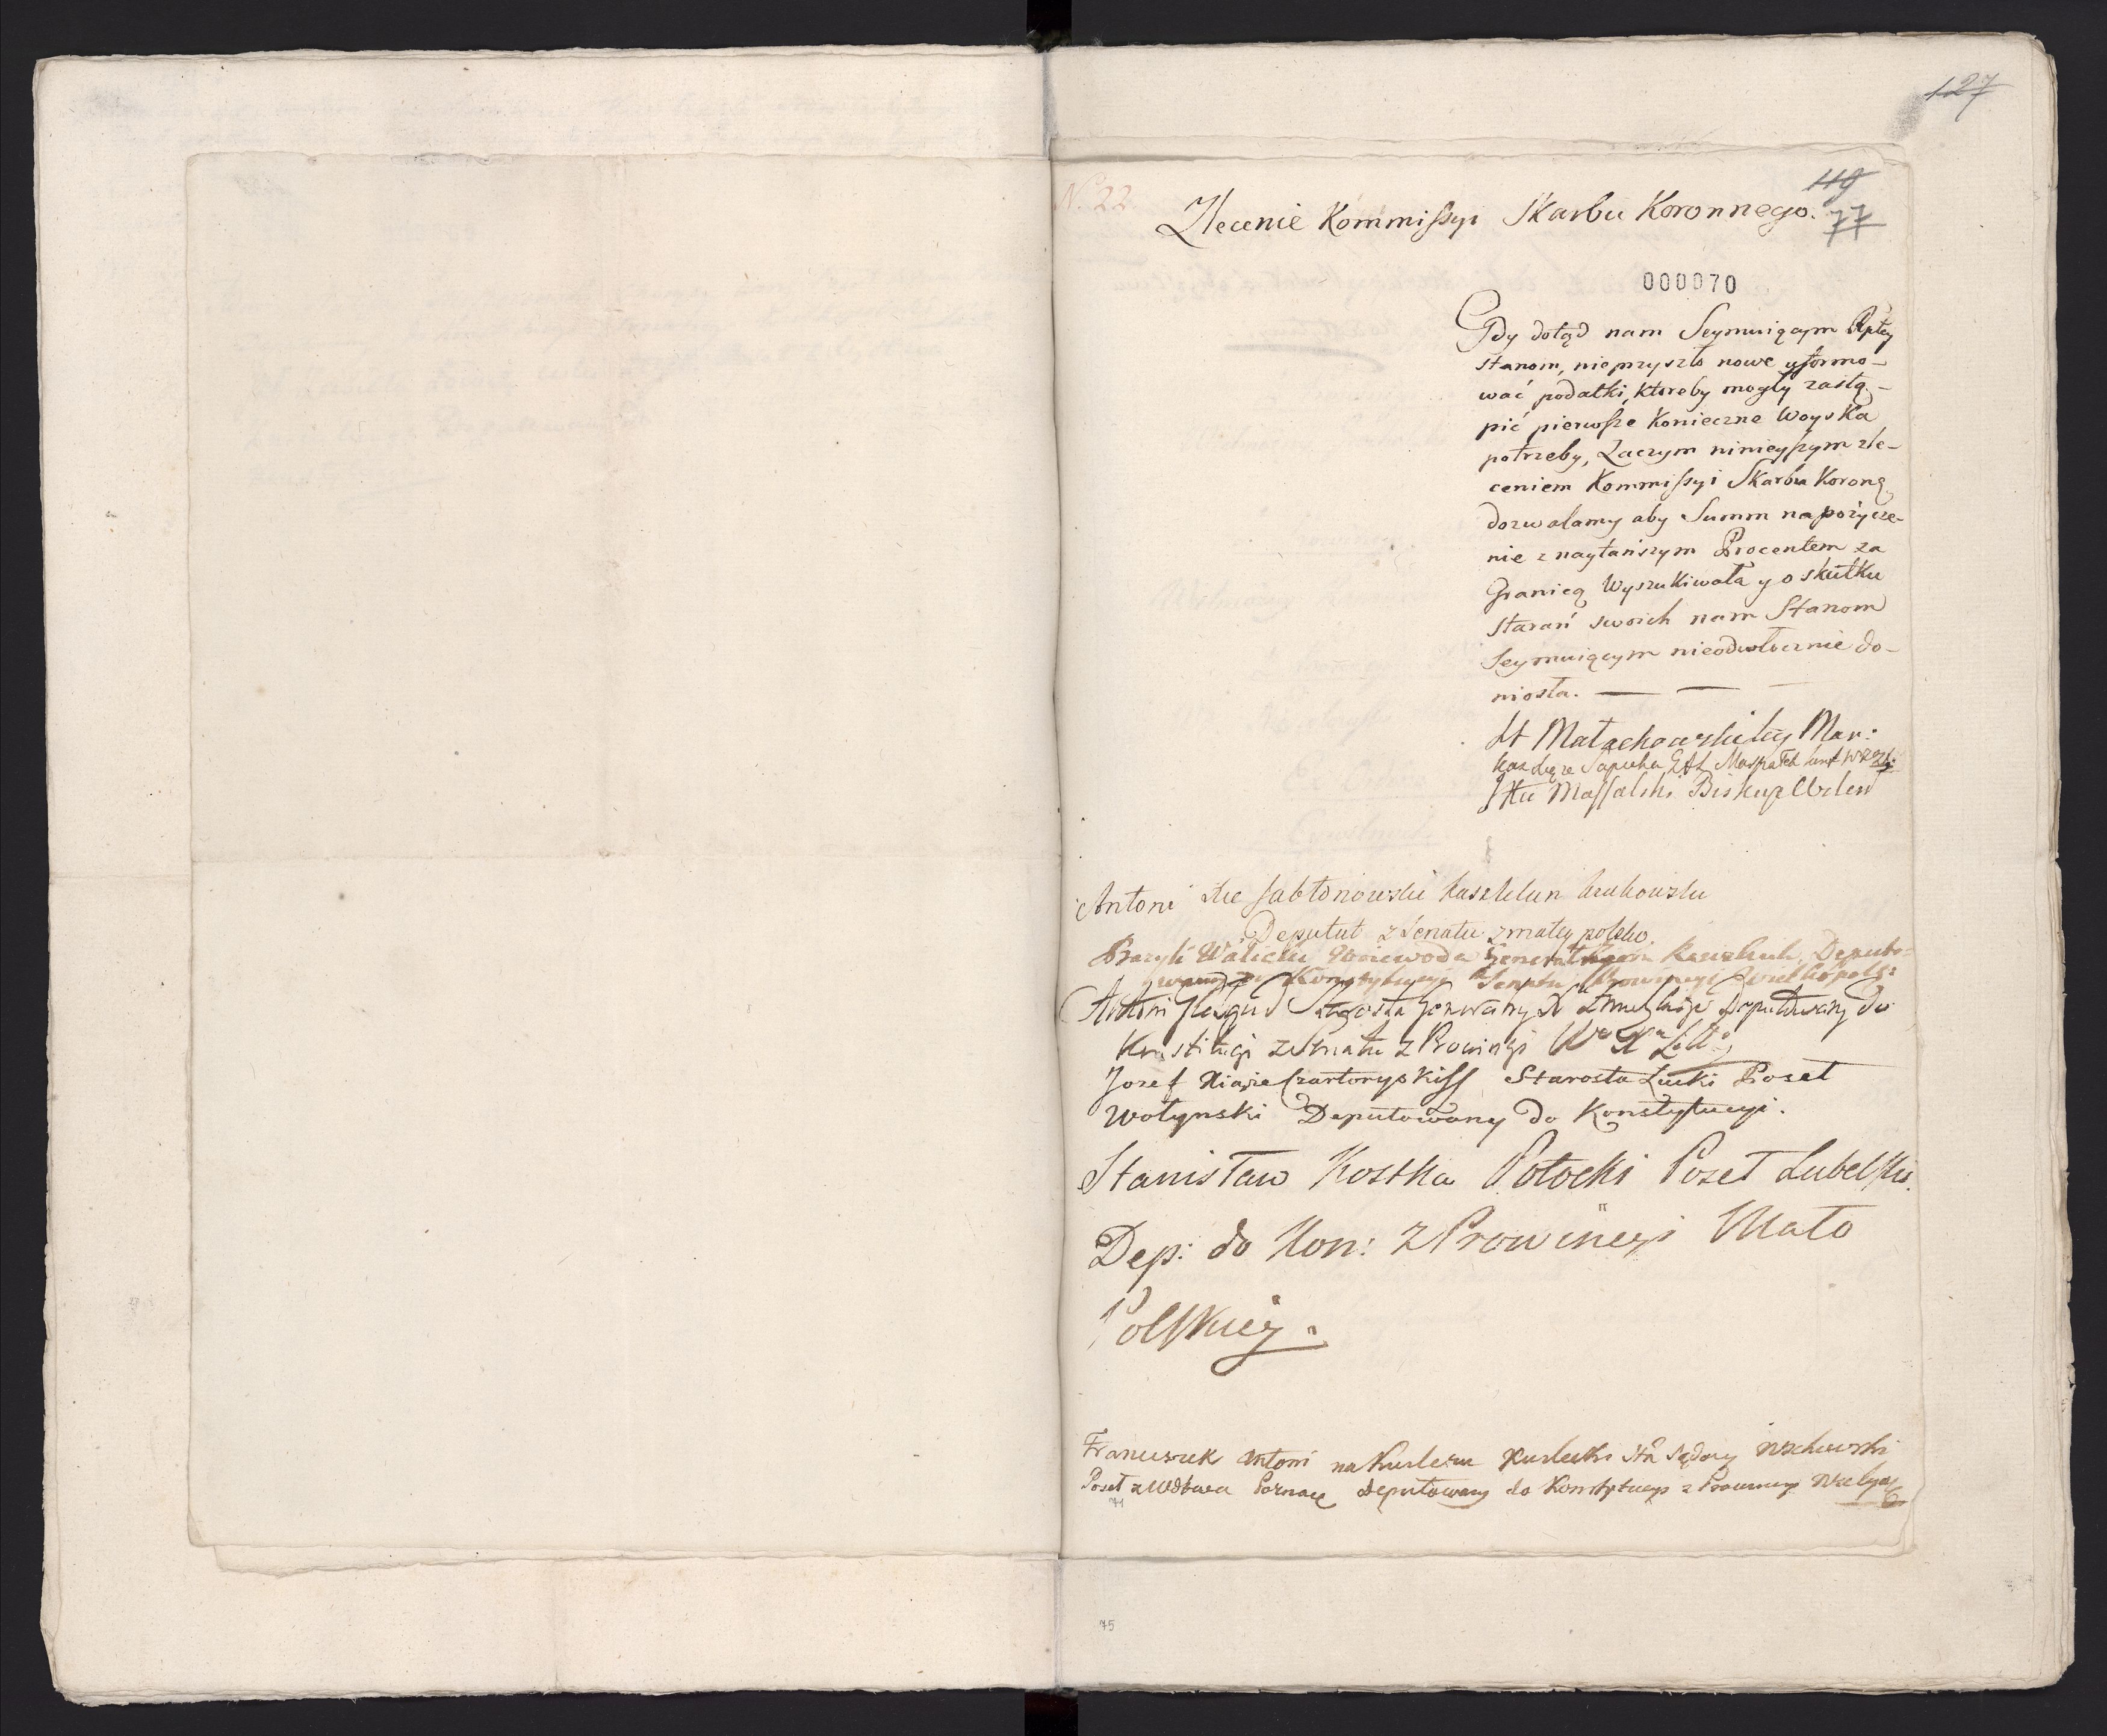 127
119
N. 22.
Zlecenie Kommissyi Skarbu Koronnego.
77
000070
Gdy dotąd nam Seymuiącym Rpltey
Stanom, nieprzyszło nowe uformo-
wać podatki, ktoreby mogły zastą-
pić pierwsze Konieczne Woyska
potrzeby, Zaczym ninieyszym zle-
ceniem Kommissyi Skarbu Koronę
dozwalamy aby Summ na pożycze-
nie z naytańszym Procentem za
Granicą Wyszukiwała y o skutku
starań swoich nam Stanom
Seymuiącym nieodwłocznie do-
niosła.
St Małachowski Mar:
Kaz Xiąże Sapieha
Massalski Biskup Wilen
Antoni Xże Jabłonowski kasztelan krakowski
Deputat z Senatu z małey polsko.
Bazyli Walicki Woiewoda Generał Rawski, Deputo-
wany do Konstytucyi z Senatu Prowincyi Wielkopols:
Antoni Starosta Generalny X Deputowany do
Konstitucji z Senatu z Prowincyi Wo Xa Litt:
Jozef Xiąże Czartoryski Starosta Łucki Poseł
Wołynski Deputowany do Konstytucyi.
Stanisław Kostka Potocki Poseł Lubelski.
Dep: do Kon: z Prowincyi Mało
Polskiey.
Franciszek Antoni na Sta Sądowy Wschowski
Poseł z Wdztwa Poznań Deputowany do Konstytucyi z Prowincyi
71
75